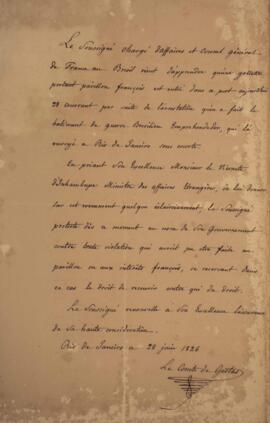 Le Soussigné chargé d'affaires et Consul général
de France au Brésil vient d'apprendre qu'une goëlette
portant pavillon français est entrée dans ce port aujourd'hui
28 courant par suite de l'arrestation qu'en a fait le
bâtiment de guerre Brésilien Emprehendedor, qui l'a
envoyé à Rio de Janeiro sous escorte.
En priant Son Excellence Monsieur le Vicomte
d'Inhambupe Ministre des affaires Etrangères, de lui donner
sur cet évenement quelque éclaircissement, le Soussigné
proteste dès ce moment au nom de Son Gouvernement
contre toute violation qui auroit pu être faite au
pavillon ou aux intérêts français, se réservant dans
ce cas le droit de recours contre qui de droit.
Le Soussigné renouvelle à Son Excellence l'assurance
de Sa haute considération.
Rio de Janeiro le 28 juin 1826
Le Comte de Gestas